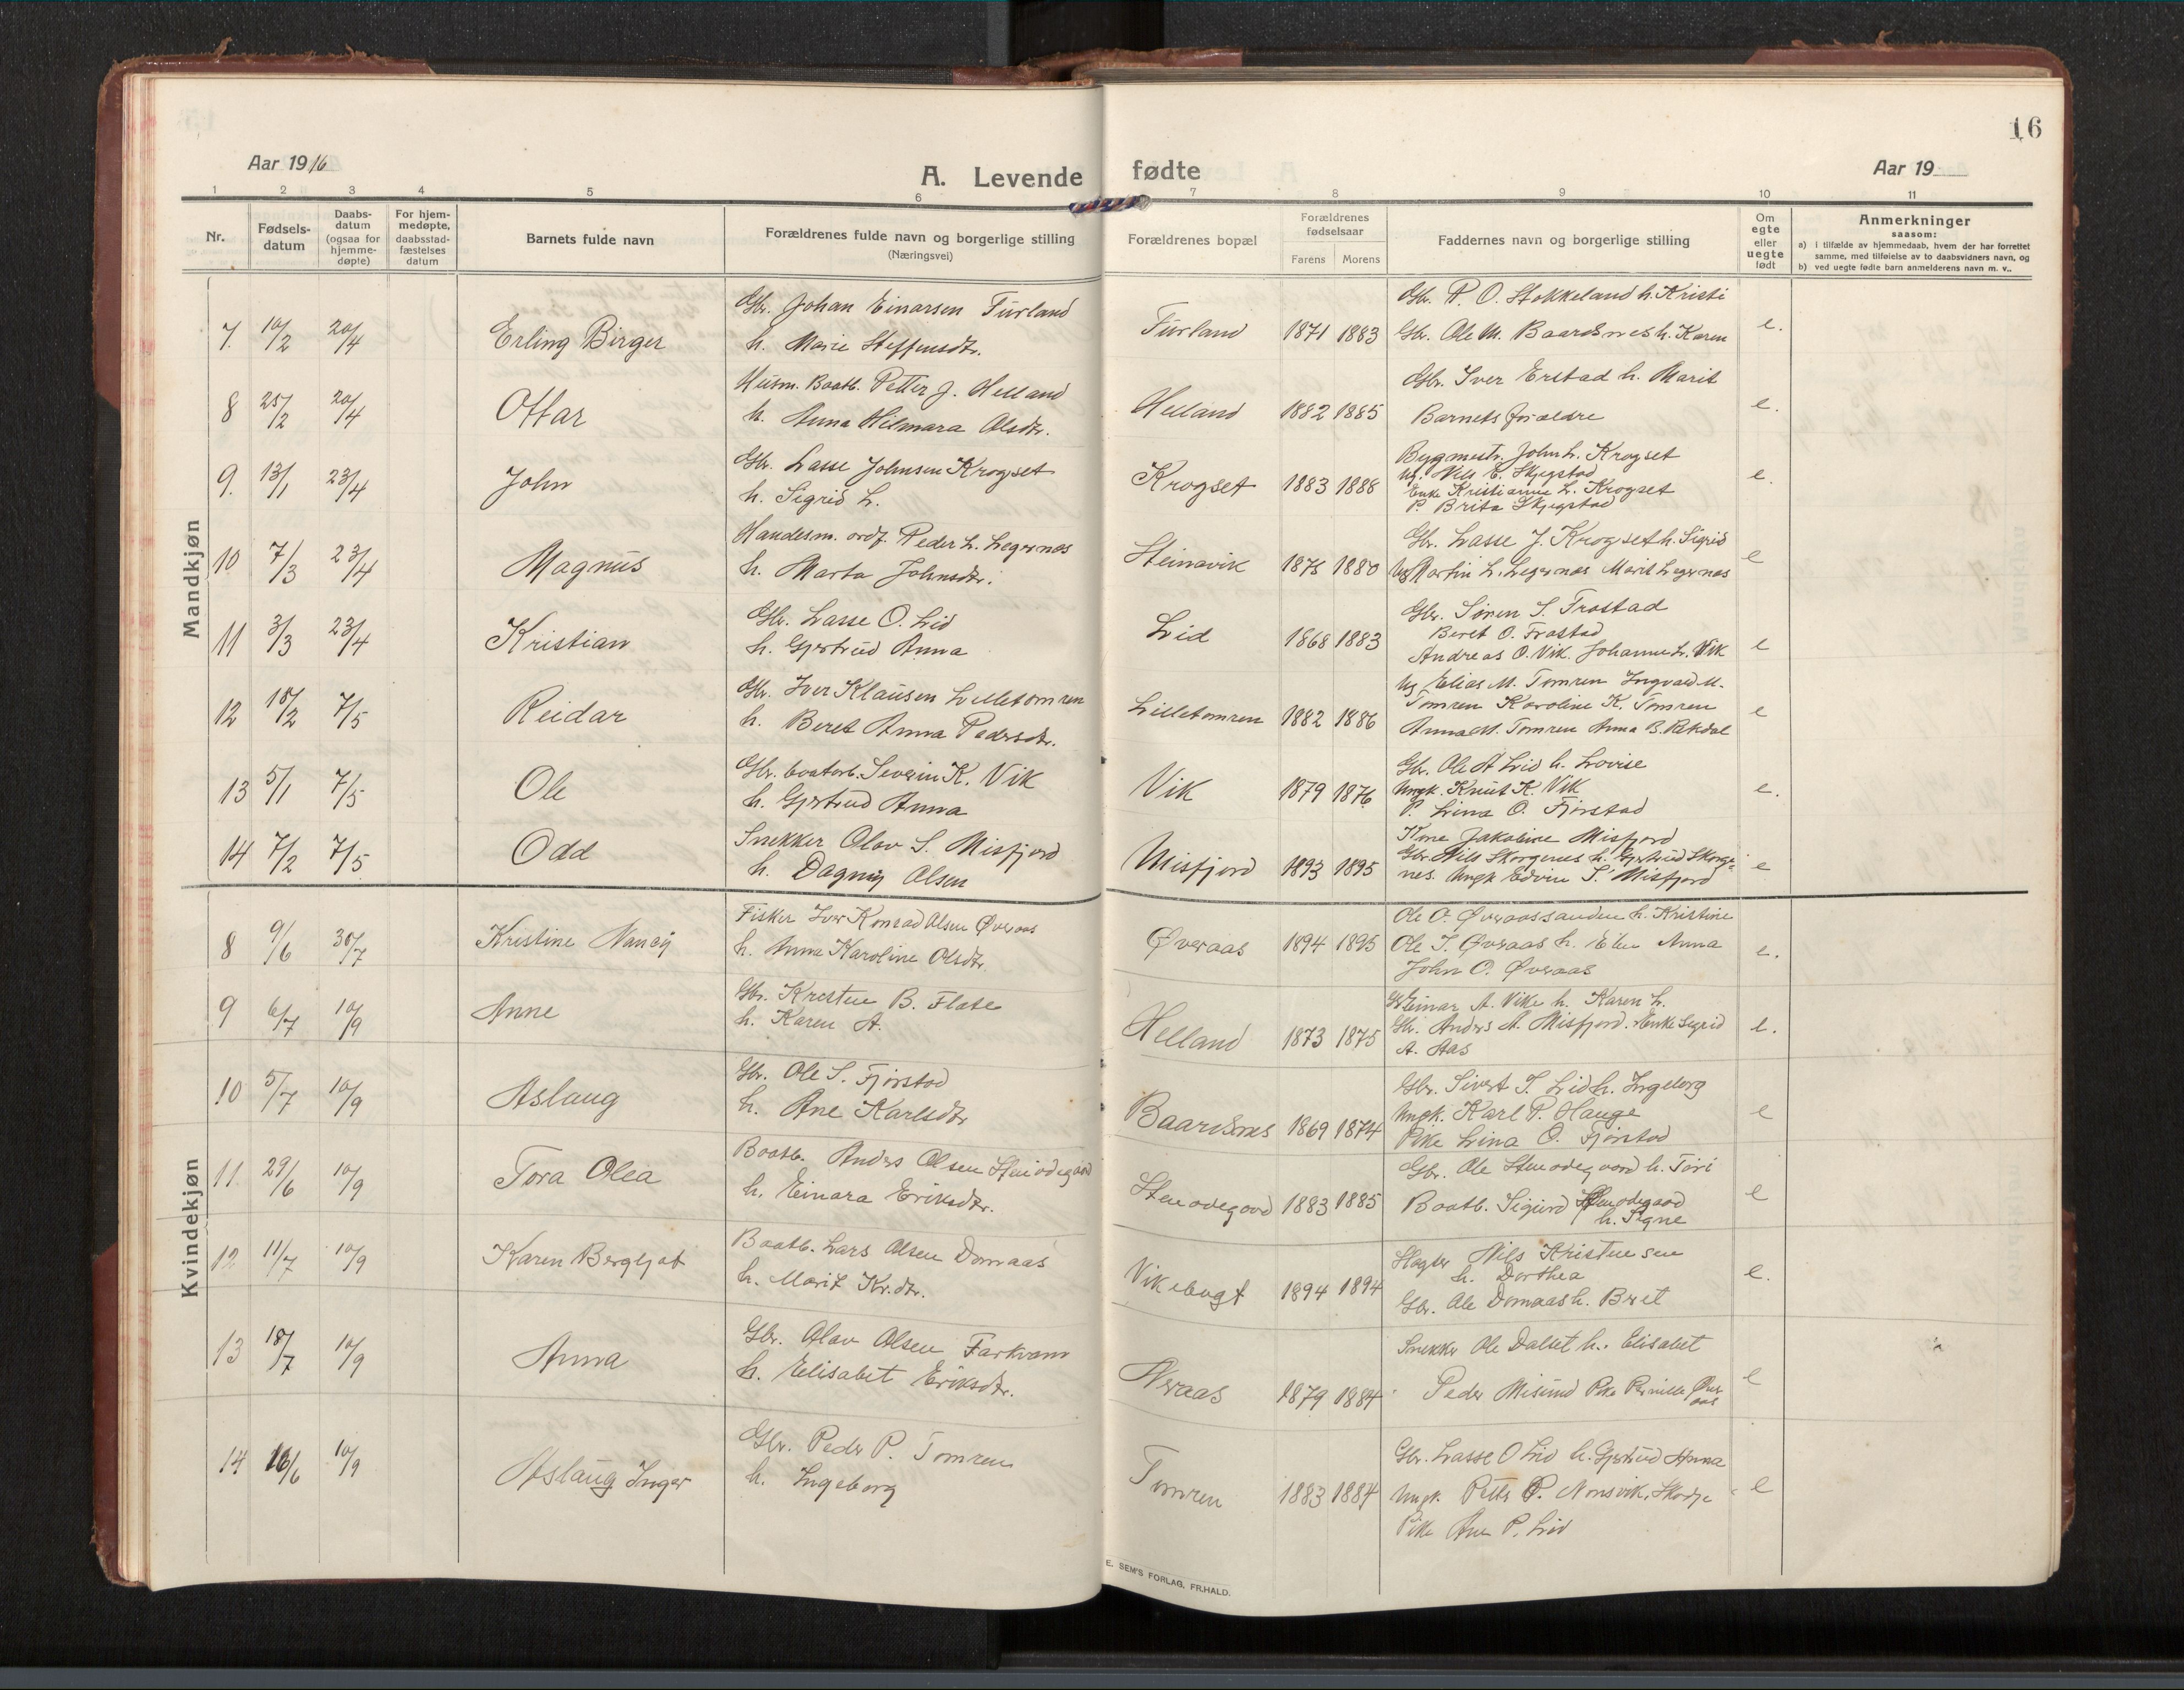 16
Aar 1916
A. Levende fødte
Aar 19
1 2 3 4 5 6 7 8 9 10 11
Nr.
Fødsels-
datum
Daabs-
datum
(ogsaa for
hjemme-
døpte)
For hjem-
medøpte,
daabsstad-
fæstelses
datum
Barnets fulde navn
Forældrenes fulde navn og borgerlige stilling
(Næringsvei)
Forældrenes bopæl
Forældrenes
fødselsaar
Farens Morens
Faddernes navn og borgerlige stilling
Om
egte
eller
uegte
født
Anmerkninger
saasom:
a) i tilfælde av hjemmedaab, hvem der har forrettet
samme, med tilføielse av to daabsvidners navn, og
b) ved uegte fødte barn anmelderens navn m. v..
Mandkjøn
7 10/2 20/4 Erling Birger
Gbr. Johan Einarsen Furland
h. Marie Steffensdtr.
Furland 1871 1883
Gbr. P. O. Stokkeland h. Kristi
Gbr. Ole M. Baardsnes h. Karen
e.
8 25/2 20/4 Ottar
Husm. Baatb. Petter J. Helland
h. Anna Hilmara Olsdtr.
Helland 1882 1885
Gbr. Iver Erstad h. Marit
Barnets forældre
e.
9. 13/1 23/4 John
Gbr. Lasse Johnsen Krogset
h. Sigrid L.
Krogset 1883 1888
Bygmestr. John L. Krogset
Ug. Nils E. Skjegstad
Enke Kristianne L. Krogset
P. Brita Skjegstad
e.
10 7/3 23/4 Magnus
Handesm. ordf. Peder L. Legernes
h. Marta Johnsdtr.
Steinsvik 1875 1880
Gbr. Lasse J. Krogset h. Sigrid
Ug Martin L. Legernes Marit Legernes
e
11 3/3 23/4 Kristian
Gbr. Lasse O. Lid
h. Gjertrud Anna
Lid 1868 1883
Gbr. Søren S. Frostad
Beret O. Frostad
Andreas O. Vik. Johanne L. Vik
e
12 18/2 7/5 Reidar
Gbr. Iver Klausen Lilletomren
h. Beret Anna Pedersdtr.
Lilletomren 1882 1886
Ug Elias M. Tomren Ingvald M.
Tomren Karoline K. Tomren
Anna M. Tomren Anna B. Rekdal
e
13 5/1 7/5 Ole
Gbr. baatb. Severin K. Vik
h. Gjertrud Anna
Vik 1879 1876
Gb. Ole A Lid h. Lovise
Ungk. Knut K. Vik
P. Lina O. Fjørstad
e.
14 7/2 7/5 Odd
Snekker Olav S. Misfjord
h. Dagny Olsen
Misfjord 1893 1895
Kone Jakobine Misfjord
Gbr. Nils Skorgenes h. Gjertrud Skorge-
nes. Ungk Edvin S. Misfjord
e
Kvindekjøn
8 9/6 30/7 Kristine Nancy
Fisker Iver Konrad Olsen Øveraas
h. Anna Karoline Olsdtr
Øveraas 1894 1895
Ole O. Øveraassanden h. Kristine
Ole I. Øveraas h. Elen Anna
John O. Øveraas
e.
9 6/7 10/9 Anne
Gbr. Kresten B. Flate
h. Karen A.
Helland 1873 1875
Gbr Einar A. Vike h. Karen L.
Gbr. Anders A. Misfjord. Enke Sigrid
A. Aas
e.
10 5/7 10/9 Aslaug
Gbr. Ole S. Fjørstad
h. Ane Karlsdtr
Baardsnes 1869 1874
Gbr. Sivert I. Lid h. Ingeborg
Ungk. Karl P. Hauge
Pike Lina O. Fjørstad
e
11 29/6 10/9 Tora Olea
Baatb. Anders Olsen Stenødegaard
h. Einara Eriksdtr.
Stenødegaard 1883 1885
Gbr. Ole Stenødegaard h. Turi
Baatb. Sigurd Stenødegaard
h. Signe
e
12 11/7 10/9 Karen Bergljot
Baatb. Lars Olsen Domaas
h. Marit Kr.dtr.
Vikebugt 1894 1894
Slagter Nils Kristensen
h. Dorthea
Gbr. Ole Domaas h. Bret
e.
13 18/7 10/9 Anna
Gbr. Olav Olsen Farkvam
h. Elisabet Eriksdtr.
Øveraas 1879 1884
Snekker Ole Dalset h. Elisabet
Peder Misund Pike Pernille Øver
aas
e
14 16/6 10/9 Aslaug Inger
Gbr. Peder P. Tomren
h. Ingeborg
Tomren 1883 1884
Gbr. Lasse O Lid h. Gjertrud Anna
Ungk. Petter P. Nonsvik, Skodje
Pike Ane P. Lid
e
E. SEM'S FORLAG, FR.HALD.